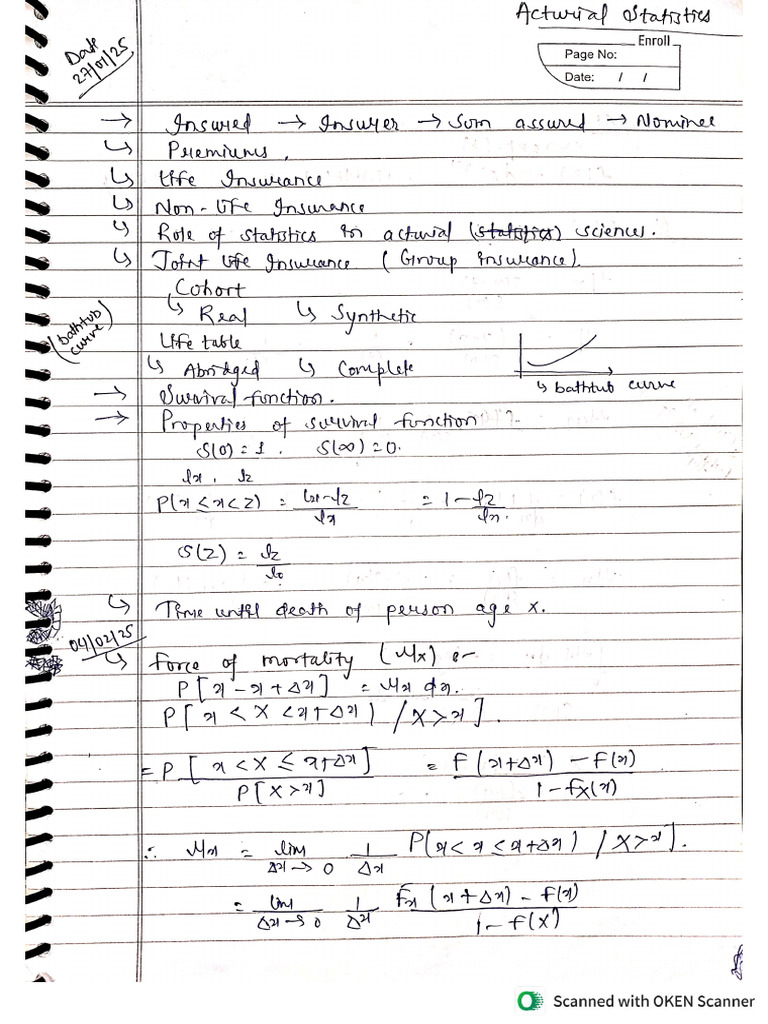 Acturial Statistics
Date
27/01/25
Enroll
Page No:
Date: / /
→ Insured → Insurer → Sum assured → Nominee
↳ Premiums.
↳ Life Insurance
↳ Non-life Insurance
↳ Role of statistics in acturial (statistics) sciences.
↳ Joint life Insurance (Group insurance).
Cohort
↳ Real ↳ Synthetic
(bathtub curve)
Life table
↳ Abridged ↳ Complete
↳ bathtub curve
→ Survival function.
→ Properties of survival function
S(0) = 1. S(∞) = 0.
lx, lz
P(x ≤ x < z) = (lx - lz)/lx = 1 - lz/lx.
S(z) = lz/l0
↳ Time until death of person age x.
04/02/25
↳ Force of mortality (μx) :-
P[x - x + Δx] = μx dx.
P[x < X < x + Δx) / X > x].
= P[x < X ≤ x + Δx] / P[X > x] = F(x + Δx) - F(x) / 1 - Fx(x)
∴ μx = lim Δx → 0 1/Δx P(x < x ≤ x + Δx) / X > x].
= lim Δx → 0 1/Δx Fx(x + Δx) - F(x) / 1 - F(x)
Scanned with OKEN Scanner